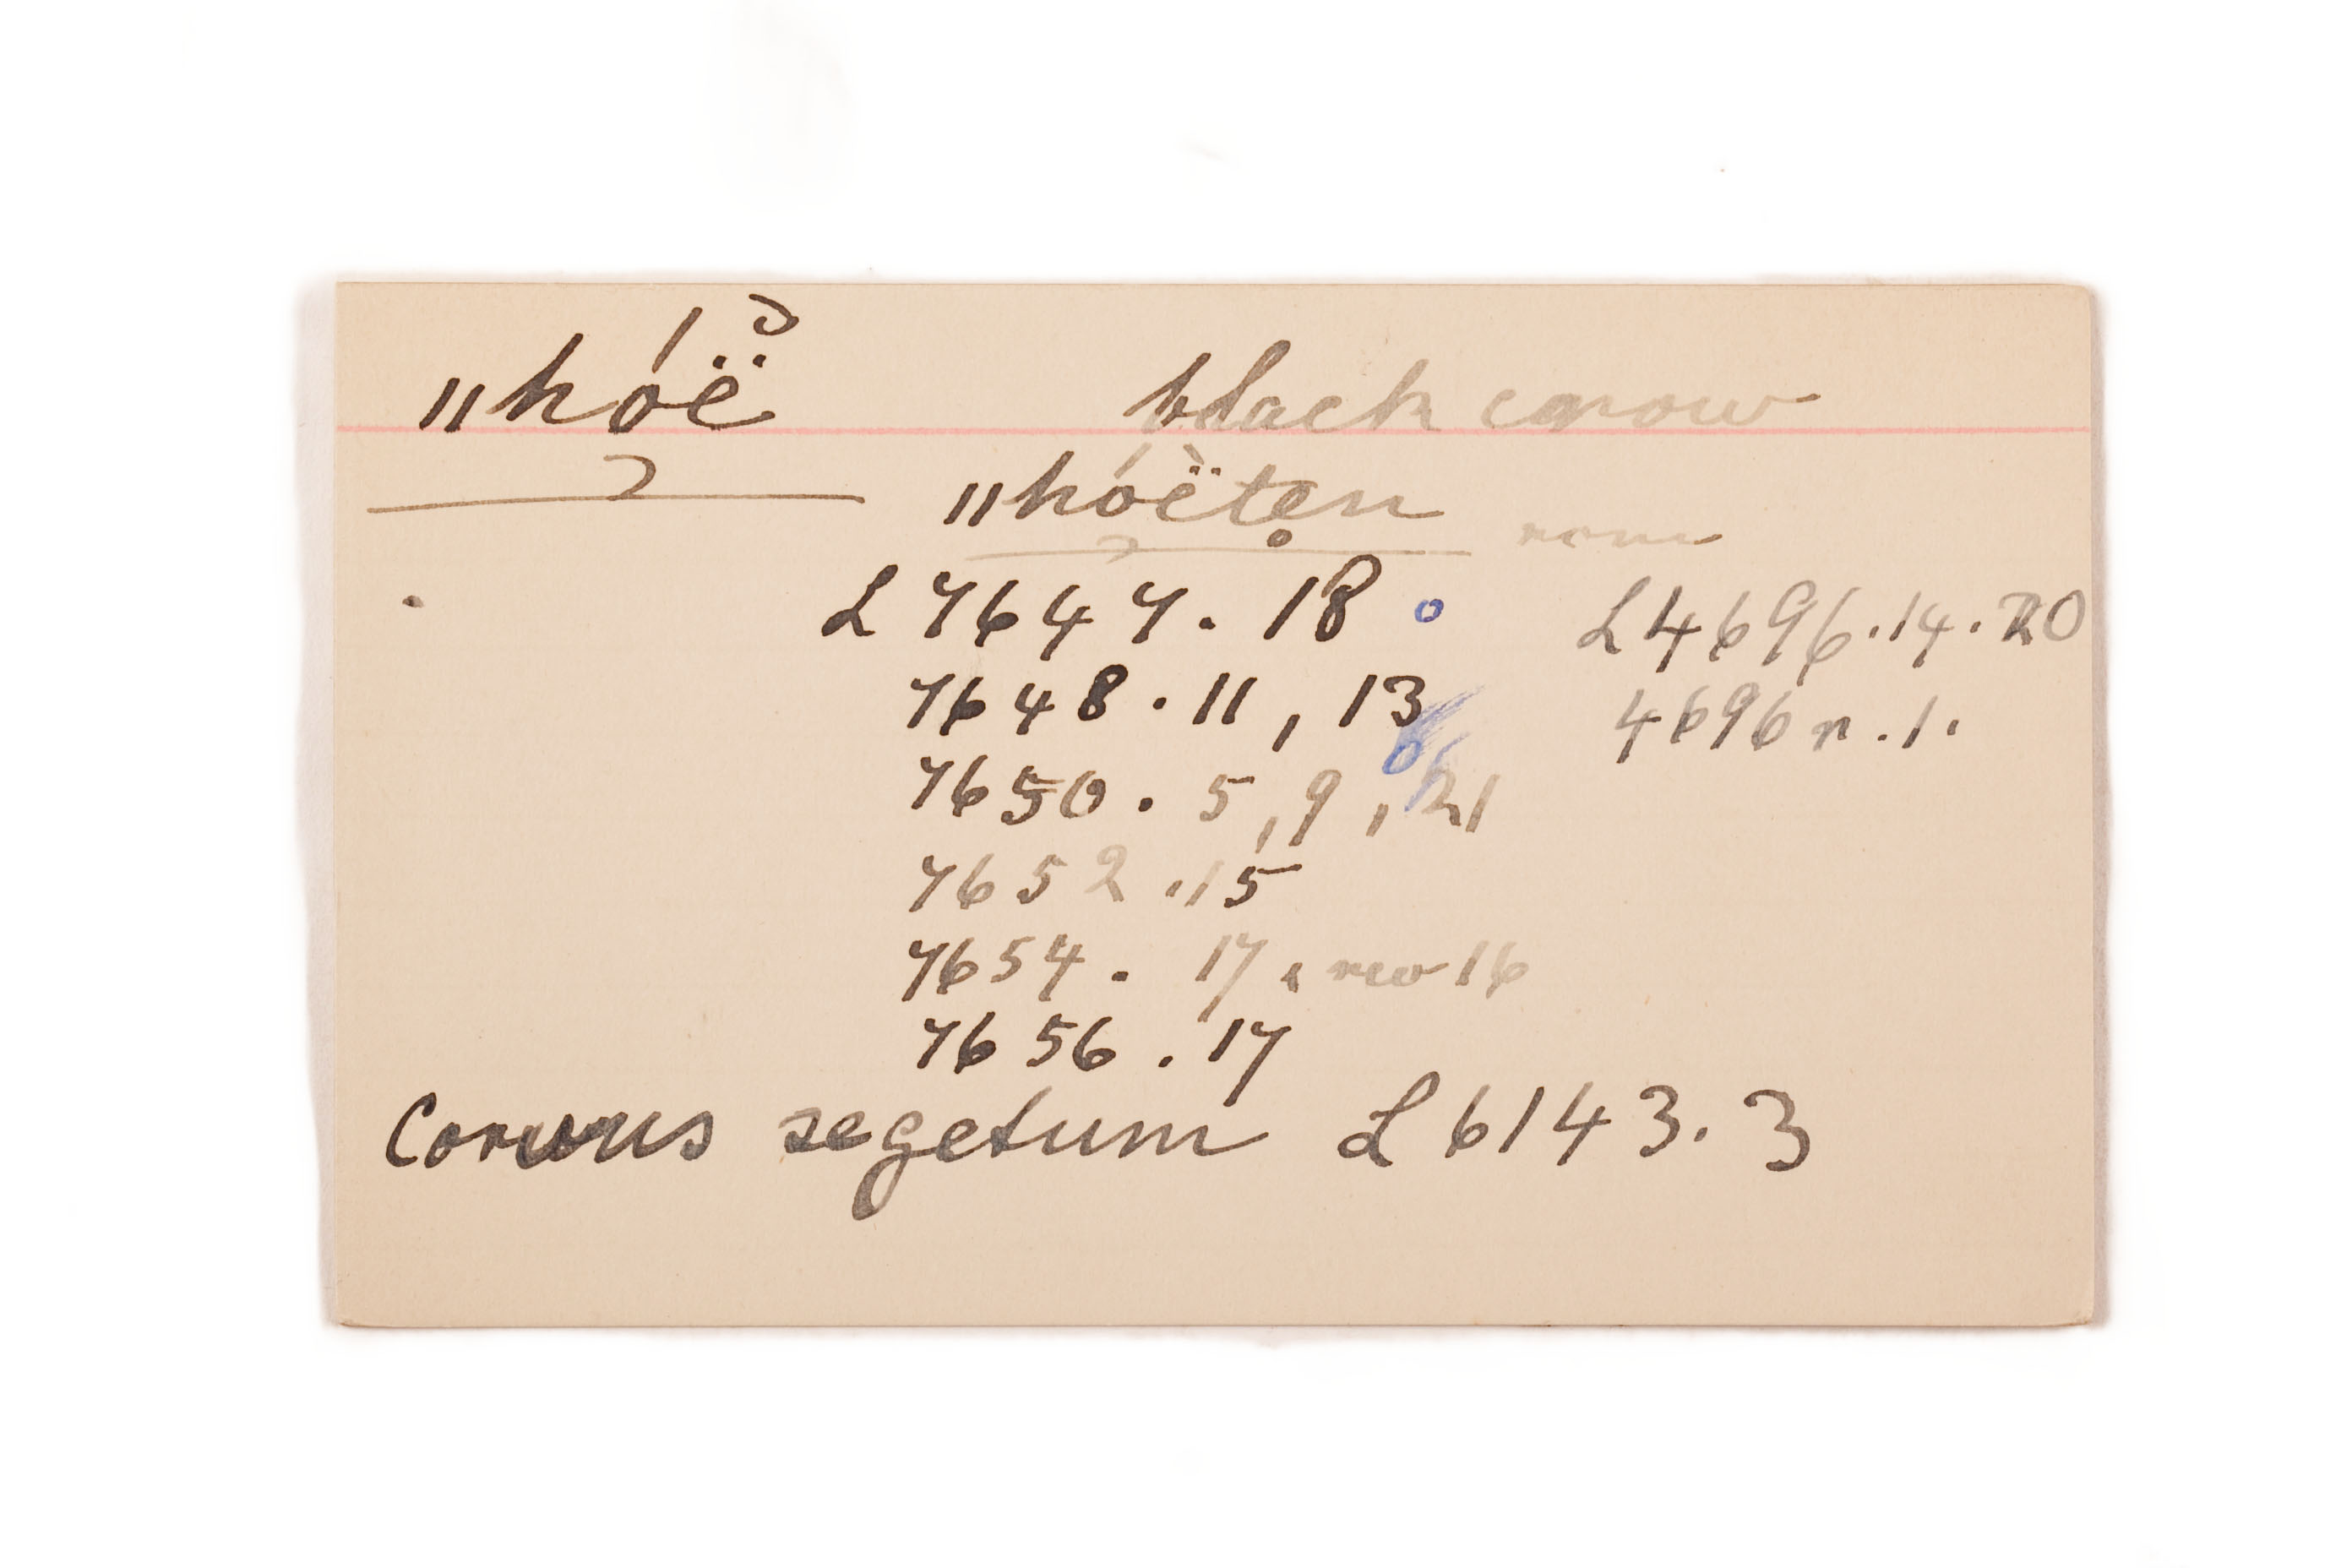 ǁhóë̆ black crow
ǁhóë̀tẹn nom
L 7647. 18 o L 4696. 14. 20
7648. 11, 13 4696 r. 1.
7650. 5, 9, 21
7652. 15
7654. 17, rev 16
7656. 17
Corvus segetum L 6143. 3